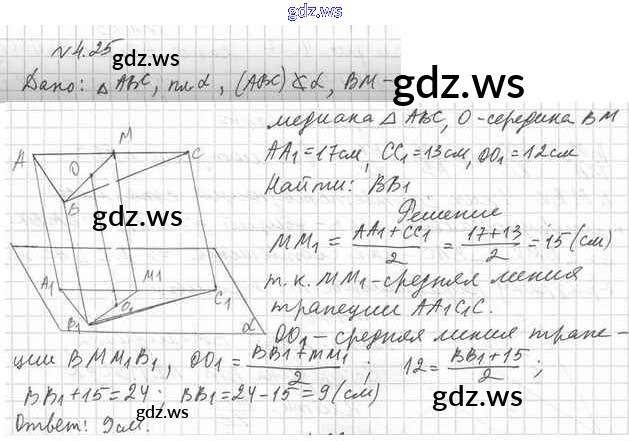 gdz.ws
№4.25
gdz.ws
Дано: △ABC, пл α, (ABC) ∦ α, BM –
gdz.ws
медиана △ ABC, O - середина BM
AA₁ = 17см, CC₁ = 13см, OO₁ = 12см
Найти: BB₁
Решение
MM₁ = (AA₁+CC₁)/2 = (17+13)/2 = 15 (см)
т.к. MM₁ - средняя линия
трапеции AA₁C₁C.
OO₁ - средняя линия трапе-
ции BMM₁B₁, OO₁ = (BB₁+MM₁)/2 ; 12 = (BB₁+15)/2 ;
BB₁+15 = 24; BB₁ = 24-15 = 9 (см)
Ответ: 9см.
A
M
C
O
B
gdz.ws
A₁
M1
C₁
O₁
B₁
α
gdz.ws
gdz.ws
gdz.ws